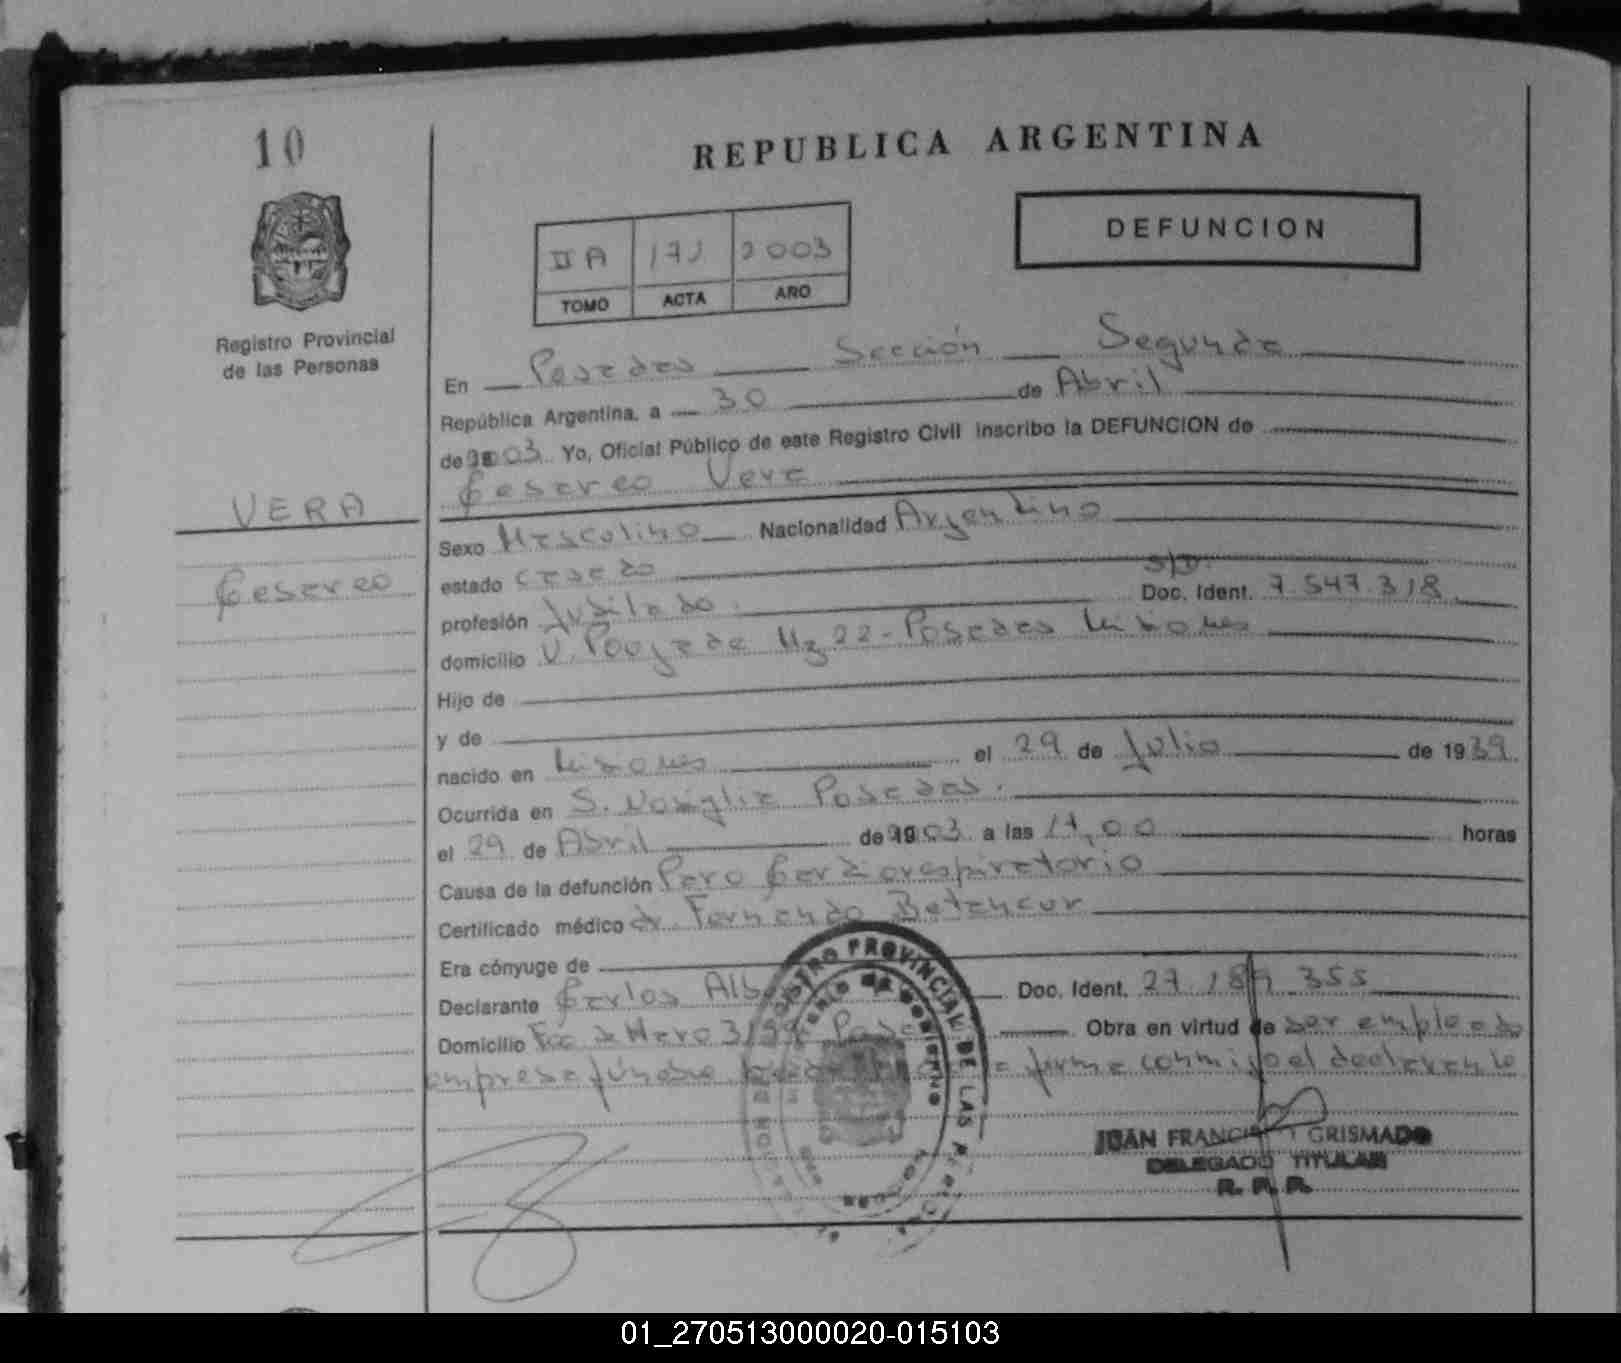 10
REPUBLICA ARGENTINA
DEFUNCION
II A 171 2003
TOMO ACTA AÑO
Registro Provincial
de las Personas
En Posadas Sección Segunda
República Argentina, a 30 de Abril
de 2003 Yo, Oficial Público de este Registro Civil inscribo la DEFUNCION de
Cesareo Vera
VERA
Cesareo
Sexo Masculino Nacionalidad Argentino
estado casado S/D.
profesión Jubilado. Doc. Ident. 7.547.318
domicilio V. Poujade Mz 22-Posadas Misiones
Hijo de
y de
nacido en Misiones el 29 de Julio de 1939.
Ocurrida en S. Nosiglia Posadas.
el 29 de Abril de 2003 a las 17,00 horas
Causa de la defunción Paro Cardiorespiratorio
Certificado médico dr. Fernando Betancur
Era cónyuge de
Declarante Carlos Doc. Ident. 27.189.355
Domicilio Fco de Haro Obra en virtud de ser empleado
empresa fúnebre firma conmigo el declarante
REGISTRO PROVINCIAL DE LAS PERSONAS
JUAN FRANCISCO GRISMADO
DELEGADO TITULAR
R. P. P.
01_270513000020-015103